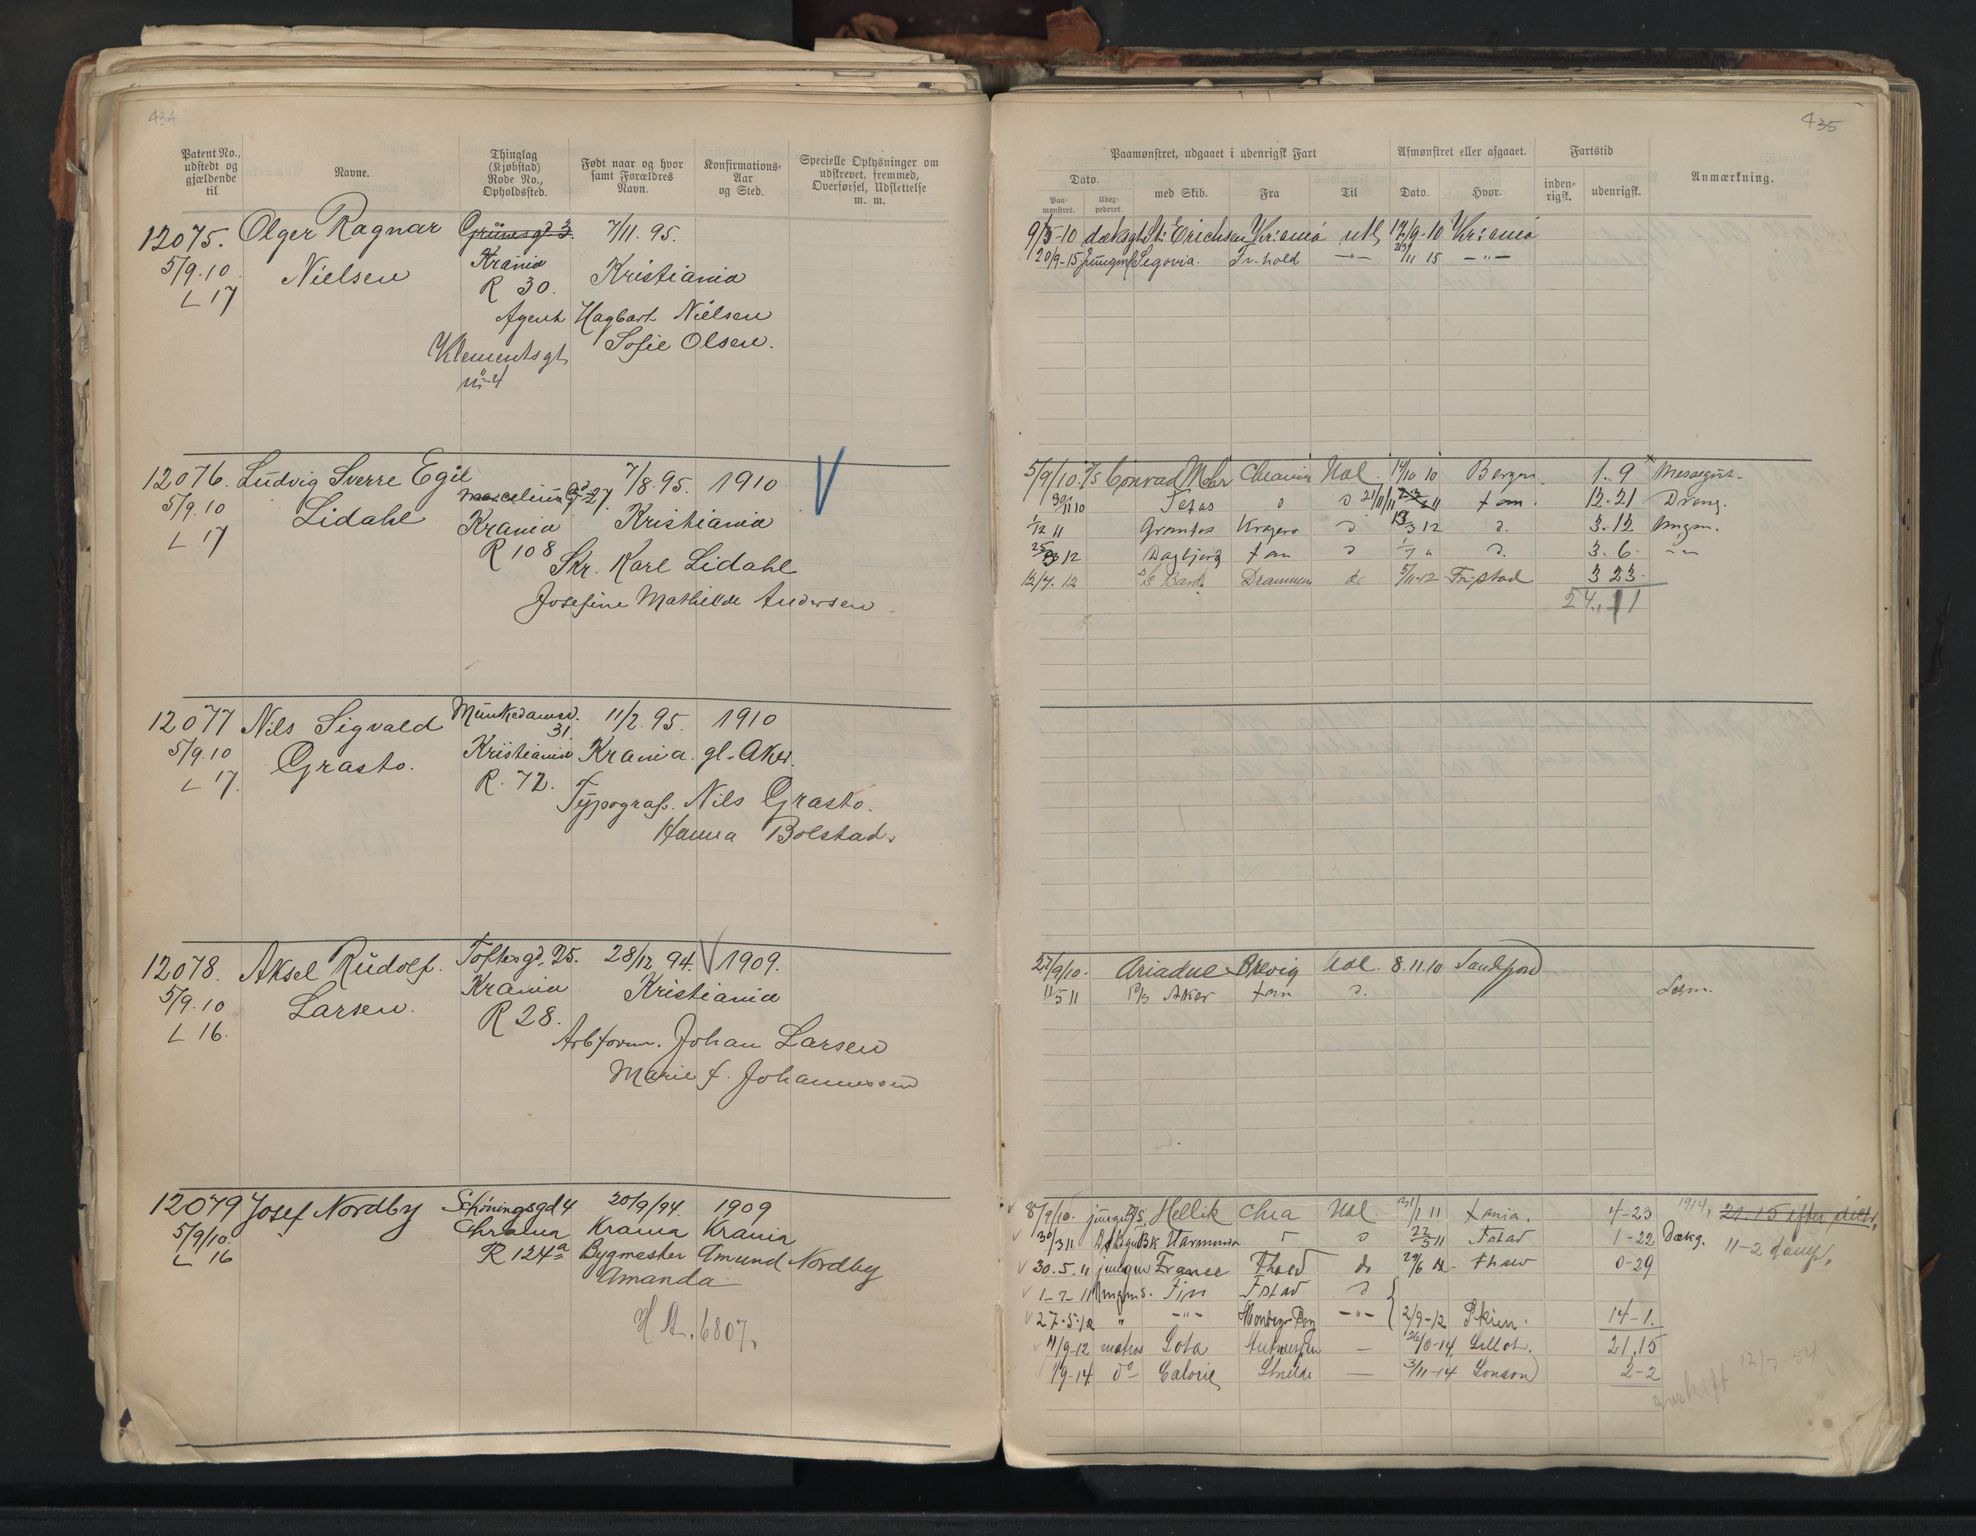 434
Patent No., udstedt og gjældende til
Navne.
Thinglag (Kjøbstad) Rode No., Opholdssted.
Født naar og hvor samt Forældres Navn.
Konfirmations-Aar og Sted.
Specielle Oplysninger om udskrevet, fremmed, Overførsel, Udslettelse m. m.
12075. Olger Ragnar Grünersgd. 3. 7/11. 95.
5/9. 10. Nielsen Krania Kristiania
L 17 R 30.
Agent Hagbart Nielsen
Klementsgt Sofie Olsen.
no 4
12076. Ludvig Sverre Egil Marcelius Gd 27. 7/8. 95. 1910 V
5/9. 10 Lidahl Krania Kristiania
L 17 R 108
Skr. Karl Lidahl
Josefine Mathilde Andersen.
12077 Nils Sigvald Munkedamsv. 31. 11/2. 95. 1910
5/9. 10 Grasto. Kristiania Krania. gl. Aker.
L 17. R. 72.
Typograf. Nils Grasto.
Hanna Bolstad.
12078. Aksel Rudolf Toftesgd. 25. 28/12 94. V 1909.
5/9. 10 Larsen. Krania Kristiania
L 16. R 28.
Arbform. Johan Larsen
Marie f. Johannessen
12079 Josef Nordby Schøningsgd 4 20/9/94. 1909
5/9/10. Chrania Krania Krania
L 16 R 124a Bygmester Amund Nordby
Amanda
435
Paamønstret, udgaaet i udenrigsk Fart
Afmønstret eller afgaaet.
Fartstid
Anmærkning.
Dato.
Paa-mønstret.
Uder-pederet.
med Skib.
Fra
Til
Dato.
Hvor.
inden-rigsk.
udenrigsk.
9/5-10 dæksgt St: Erichsen Kr:ania utl 17/9-10 Kr:ania
20/9-15 Jungm Segovia. Fr.hald -"- /11 15 -"-
5/9/10 S/S Conrad Mohr Chrania Udl. 14/10 10 Bergen. 1. 9 Messegut.
30/11 10 Texas d d 21/11/11 fan. 12-21 Dreng.
1/12 11 Grantas Kragerø d 19/3 12 d. 3. 12 Jungm.
25/3 12 Dagbjørg fan d 1/7 " d. 3. 6. -"-
12/7. 12 Bard. Drammen do 5/11-12 Frstad 3 23.
24, 11
22/9/10. Ariadne Brevig Udl. 8. 11. 10 Sandfjord
11/5 11 D/S Aker fan d. Lesm.
8/9/10. jungm D/S Hellik Chra Udl. 31/1 11 fania. 4-23 1914,
30/3 11 Bk Harmonia d d 22/5 11 Fstad 1-22 Dækg. 11-2 damp,
30. 5. 11 jungm Franse Fhald do 29/6 Fhald 0-29
1-7-11 Jungm S. Fin Fstad d
27-5-12 " -"- -"- 2/9-12 Skien. 14-1.
11/9-12 matros Lota Antwerpen — 26/ -14 21,15
1/9-14 do Calorie Shields — 3/11-14 London 2-2
12/7 54